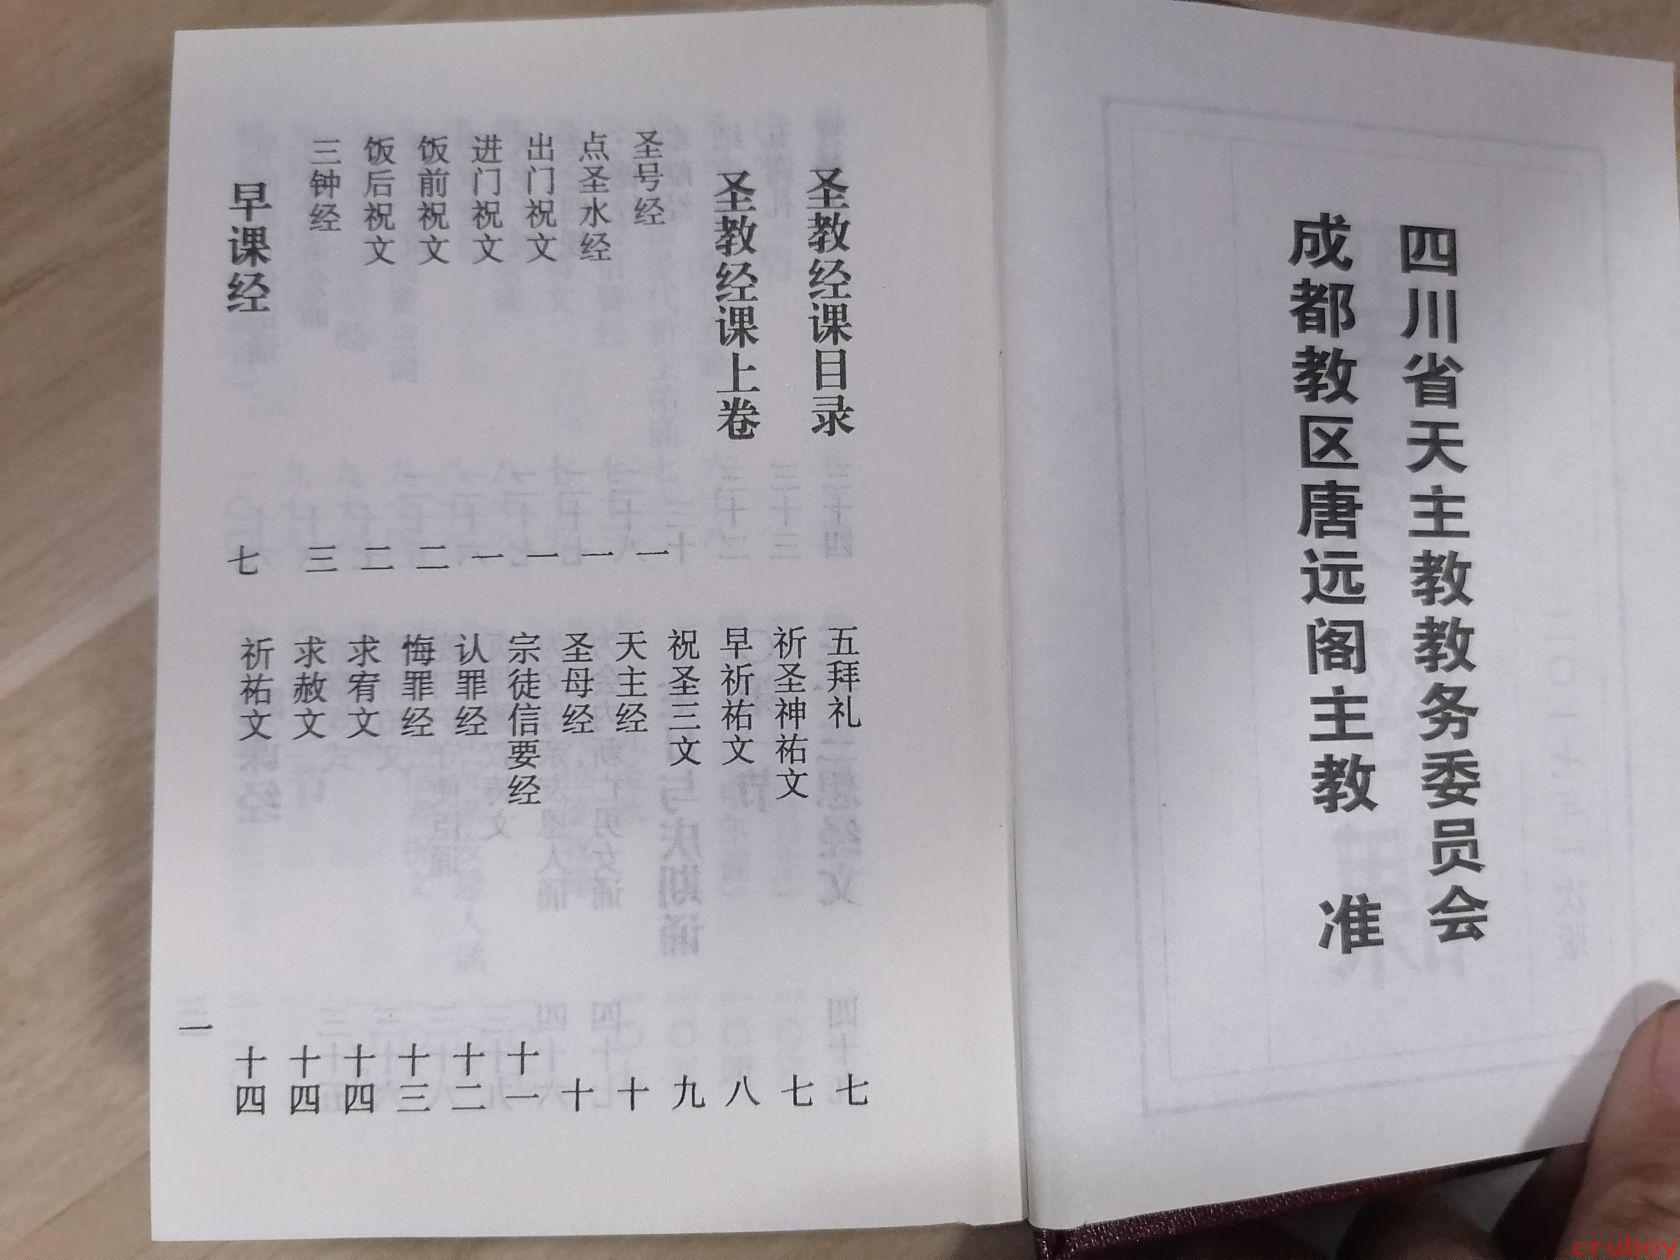 四川省天主教教务委员会
成都教区唐远阁主教 准
圣教经课目录
圣教经课上卷
圣号经 一
点圣水经 一
出门祝文 一
进门祝文 一
饭前祝文 二
饭后祝文 二
三钟经 三
早课经 七
五拜礼 七
祈圣神祐文 七
早祈祐文 八
祝圣三文 九
天主经 十
圣母经 十
宗徒信要经 十一
认罪经 十二
悔罪经 十三
求宥文 十四
求赦文 十四
祈祐文 十四
一
cruboy